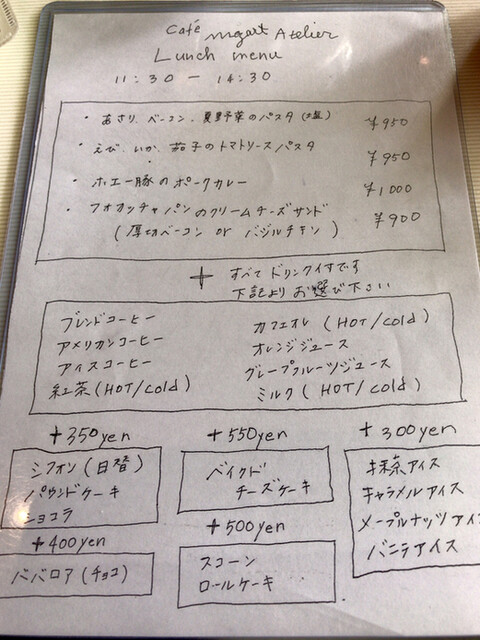 Café mozart Atelier
Lunch menu
11:30 — 14:30
・あさり、ベーコン、夏野菜のパスタ（塩） ¥950
・えび、いか、茄子のトマトソースパスタ ¥950
・ホエー豚のポークカレー ¥1000
・フォカッチャパンのクリームチーズサンド ¥900
（厚切ベーコン or バジルチキン）
+ すべてドリンク付です
下記よりお選び下さい
ブレンドコーヒー
アメリカンコーヒー
アイスコーヒー
紅茶（HOT/cold）
カフェオレ（HOT/cold）
オレンジジュース
グレープフルーツジュース
ミルク（HOT/cold）
+350yen
シフォン（日替）
パウンドケーキ
ショコラ
+400yen
ババロア（チョコ）
+550yen
ベイクド
チーズケーキ
+500yen
スコーン
ロールケーキ
+300yen
抹茶アイス
キャラメルアイス
メープルナッツアイス
バニラアイス